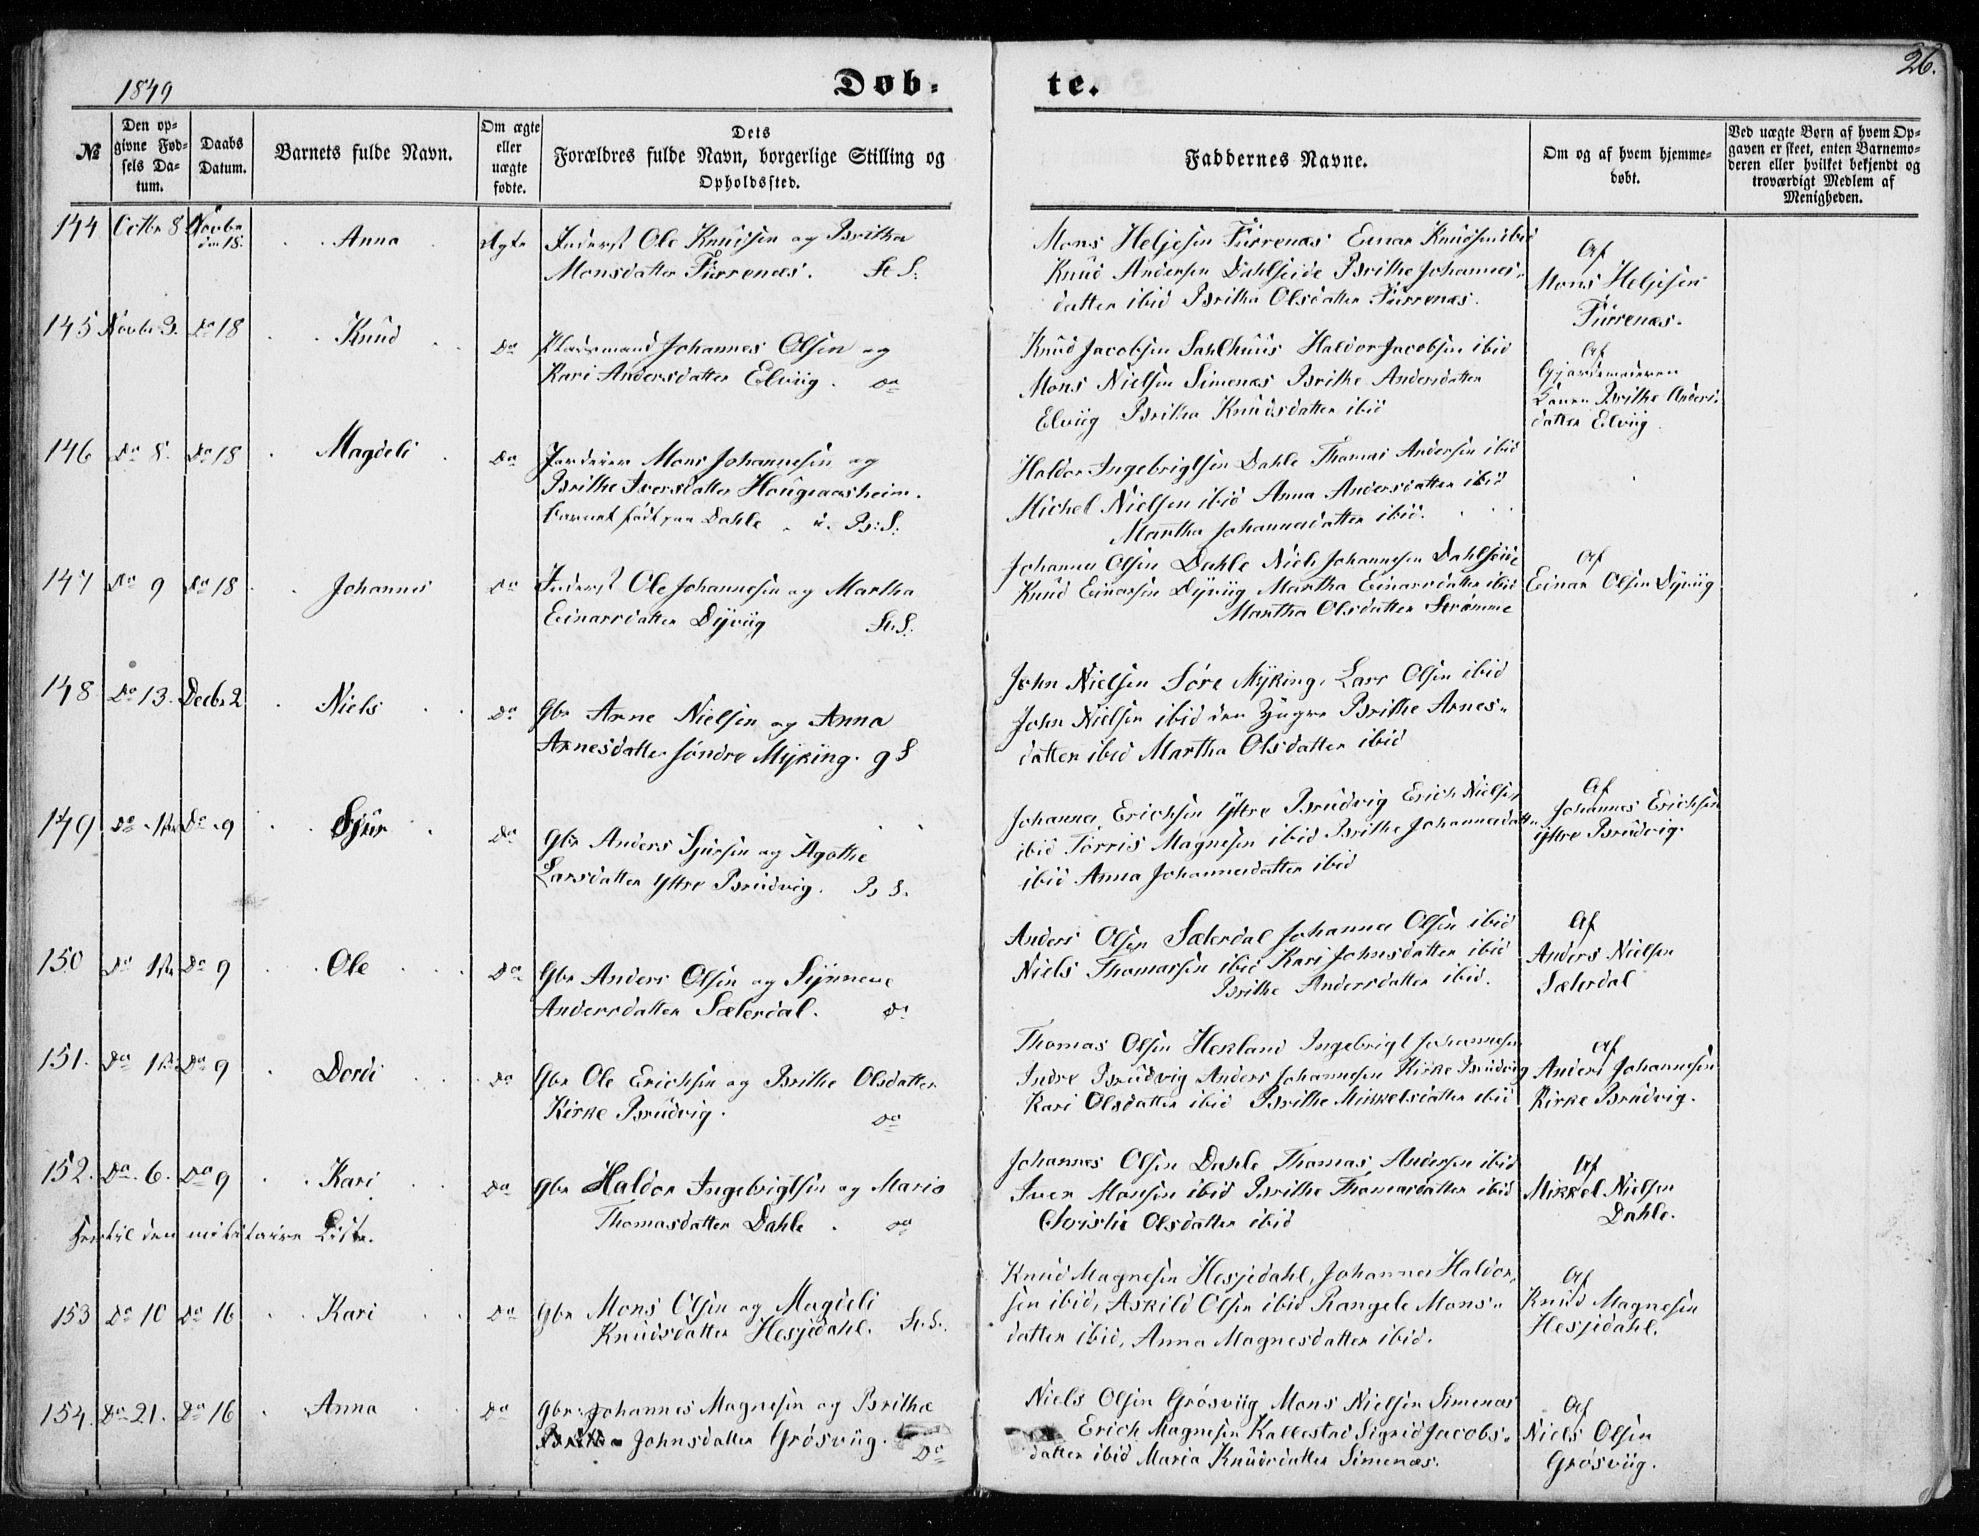 26.
1849
Døb-
te.
№
Den op-
givne Fød-
sels Da-
tum.
Daabs
Datum.
Barnets fulde Navn.
Om ægte
eller
uægte
fødte.
Dets
Forældres fulde Navn, borgerlige Stilling og
Opholdssted.
Faddernes Navne.
Om og af hvem hjemme-
døbt.
Ved uægte Børn af hvem Op-
gaven er skeet, enten Barnemo-
deren eller hvilket bekjendt og
troværdigt Medlem af
Menigheden.
144 Octbr 8 Novbr
den 18.
Anna
Ægte
Inderst Ole Knudsen og Britha
Monsdatter Furrenæs. St. S.
Mons Heljesen Furrenæs Einar Knudsen ibid
Knud Andersen Dahlseide Brithe Johannes-
datter ibid Britha Olsdatter Furrenæs.
Af
Mons Heljesen
Furrenæs.
145 Novbr 3. Do 18
Knud
Do
Pladsmand Johannes Olsen og
Kari Andersdatter Elviig. Do
Knud Jacobsen Sahlhuus Haldor Jacobsen ibid
Mons Nielsen Simenæs Brithe Andersdatter
Elviig Britha Knudsdatter ibid
Af
Gjordemoderen
Konen Brithe Anders-
datter Elviig
146 Do 8. Do 18
Magdeli
Do
Mons Johannesen og
Brithe Iversdatter Hougraasheim.
Barnet født paa Dahle B: S.
Haldor Ingebrigtsen Dahle Thomas Andersen ibid
Michel Nielsen ibid Anna Andersdatter ibid
Martha Johannesdatter ibid.
147 Do 9 Do 18
Johannes
Do
Inderst Ole Johannesen og Martha
Einarsdatter Dyviig St. S.
Johannes Olsen Dahle Niels Johannesen Dahlseide
Knud Einarsen Dyviig Martha Einarsdatter ibid
Martha Olsdatter Strømme
Af
Einar Olsen Dyviig
148 Do 13. Decbr 2
Niels
Do
Gbr Arne Nielsen og Anna
Arnesdatter søndre Myking. g S
John Nielsen Søre Myking. Lars Olsen ibid
John Nielsen ibid den Yngre Brithe Arnes-
datter ibid Martha Olsdatter ibid
149 Do 1ste Do 9
Sjur
Do
Gbr Anders Sjursen og Agothe
Larsdatter Ytre Brudvig. B S.
Johannes Erichsen Ytre Brudvig Erich Nielsen
ibid Torris Magnesen ibid Brithe Johannesdatter
ibid Anna Johannesdatter ibid
Af
Johannes Erichsen
Ytre Brudvig.
150 Do 1ste Do 9
Ole
Do
Gbr Anders Olsen og Synneve
Andersdatter Sælerdal. Do
Anders Olsen Sælerdal Johannes Olsen ibid
Niels Thomassen ibid Kari Johnsdatter ibid
Brithe Andersdatter ibid.
Af
Anders Nielsen
Sælerdal
151. Do 1ste Do 9
Dordi
Do
Gbr Ole Erichsen og Brithe Olsdatter
Kirke Brudvig. Do
Thomas Olsen Herland Ingebrigt Johannesen
Indre Brudvig Anders Johannesen Kirke Brudvig
Kari Olsdatter ibid Brithe Mikkelsdatter ibid
Af
Anders Johannesen
Kirke Brudvig.
152. Do 6. Do 9
Kari
Do
Gbr Haldor Ingebrigtsen og Maria
Thomasdatter Dahle. Do
den militaire Liste.
Johannes Olsen Dahle Thomas Andersen ibid
Iver Monsen ibid Brithe Thomasdatter ibid
Christi Olsdatter ibid
Af
Mikkel Nielsen
Dahle.
153 Do 10 Do 16
Kari
Do
Gbr Mons Olsen og Magdeli
Knudsdatter Hesjedahl. St. S.
Knud Magnesen Hesjedahl, Johannes Haldor-
sen ibid, Askild Olsen ibid Rangele Mons-
datter ibid, Anna Magnesdatter ibid.
Af
Knud Magnesen
Hesjedahl.
154. Do 21. Do 16
Anna
Do
Gbr. Johannes Magnesen og Brithe
Johnsdatter Grøsviig. Do
Niels Olsen Grøsviig Mons Nielsen Simenæs
Erich Magnesen Kallestad Sigrid Jacobs-
datter ibid Maria Knudsdatter Simenæs.
Af
Niels Olsen
Grøsviig.